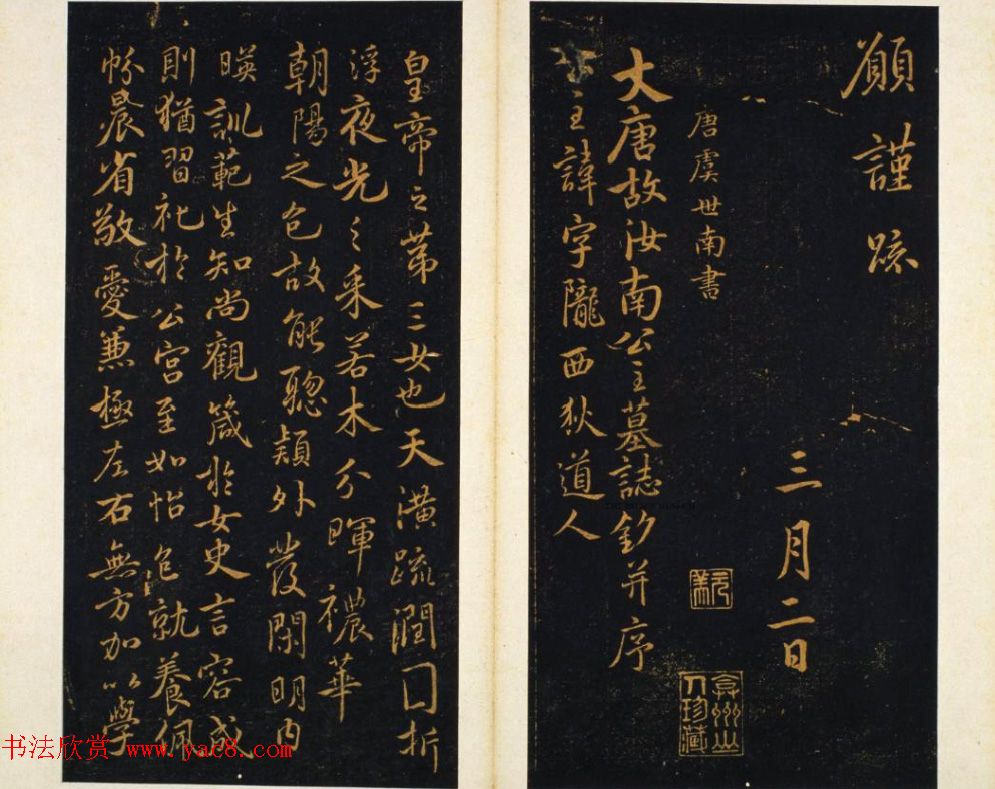 願謹疏
三月二日
唐虞世南書
大唐故汝南公主墓誌銘并序
公主諱字隴西狄道人
皇帝之第三女也天潢疏潤圓折
浮夜光之采若木分暉穠華
朝陽之色故能聰穎外發閑明內
暎訓範生知尚觀箴於女史言容成
則猶習礼於公宮至如怡色就養佩
帉晨省敬愛兼極左右無方加以學
书法欣赏 www.yac8.com